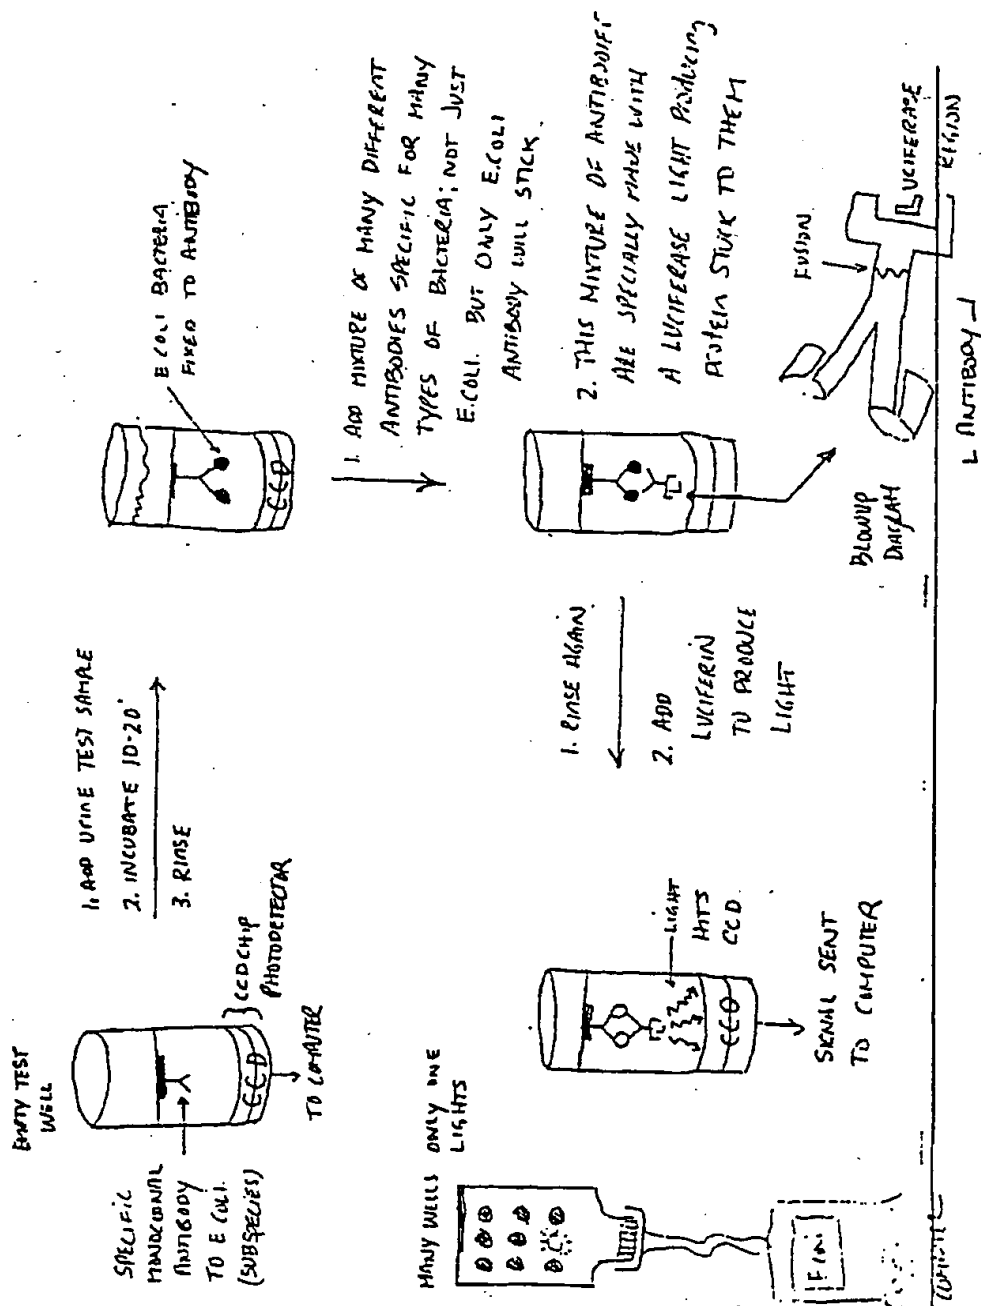 EMPTY TEST
WELL
SPECIFIC
MONOCLONAL
ANTIBODY
TO E COLI.
(SUBSPECIES)
CCD
CCD CHIP
PHOTODETECTOR
TO COMPUTER
1. ADD URINE TEST SAMPLE
2. INCUBATE 10-20'
3. RINSE
E COLI BACTERIA
FIXED TO ANTIBODY
CCD
1. ADD MIXTURE OF MANY DIFFERENT
ANTIBODIES SPECIFIC FOR MANY
TYPES OF BACTERIA; NOT JUST
E.COLI. BUT ONLY E.COLI
ANTIBODY WILL STICK.
2. THIS MIXTURE OF ANTIBODIES
ARE SPECIALLY MADE WITH
A LUCIFERASE LIGHT PRODUCING
PROTEIN STUCK TO THEM
BLOWUP
DIAGRAM
FUSION
LUCIFERASE
REGION
ANTIBODY
1. RINSE AGAIN
2. ADD
LUCIFERIN
TO PRODUCE
LIGHT
LIGHT
HITS
CCD
CCD
SIGNAL SENT
TO COMPUTER
MANY WELLS ONLY ONE
LIGHTS